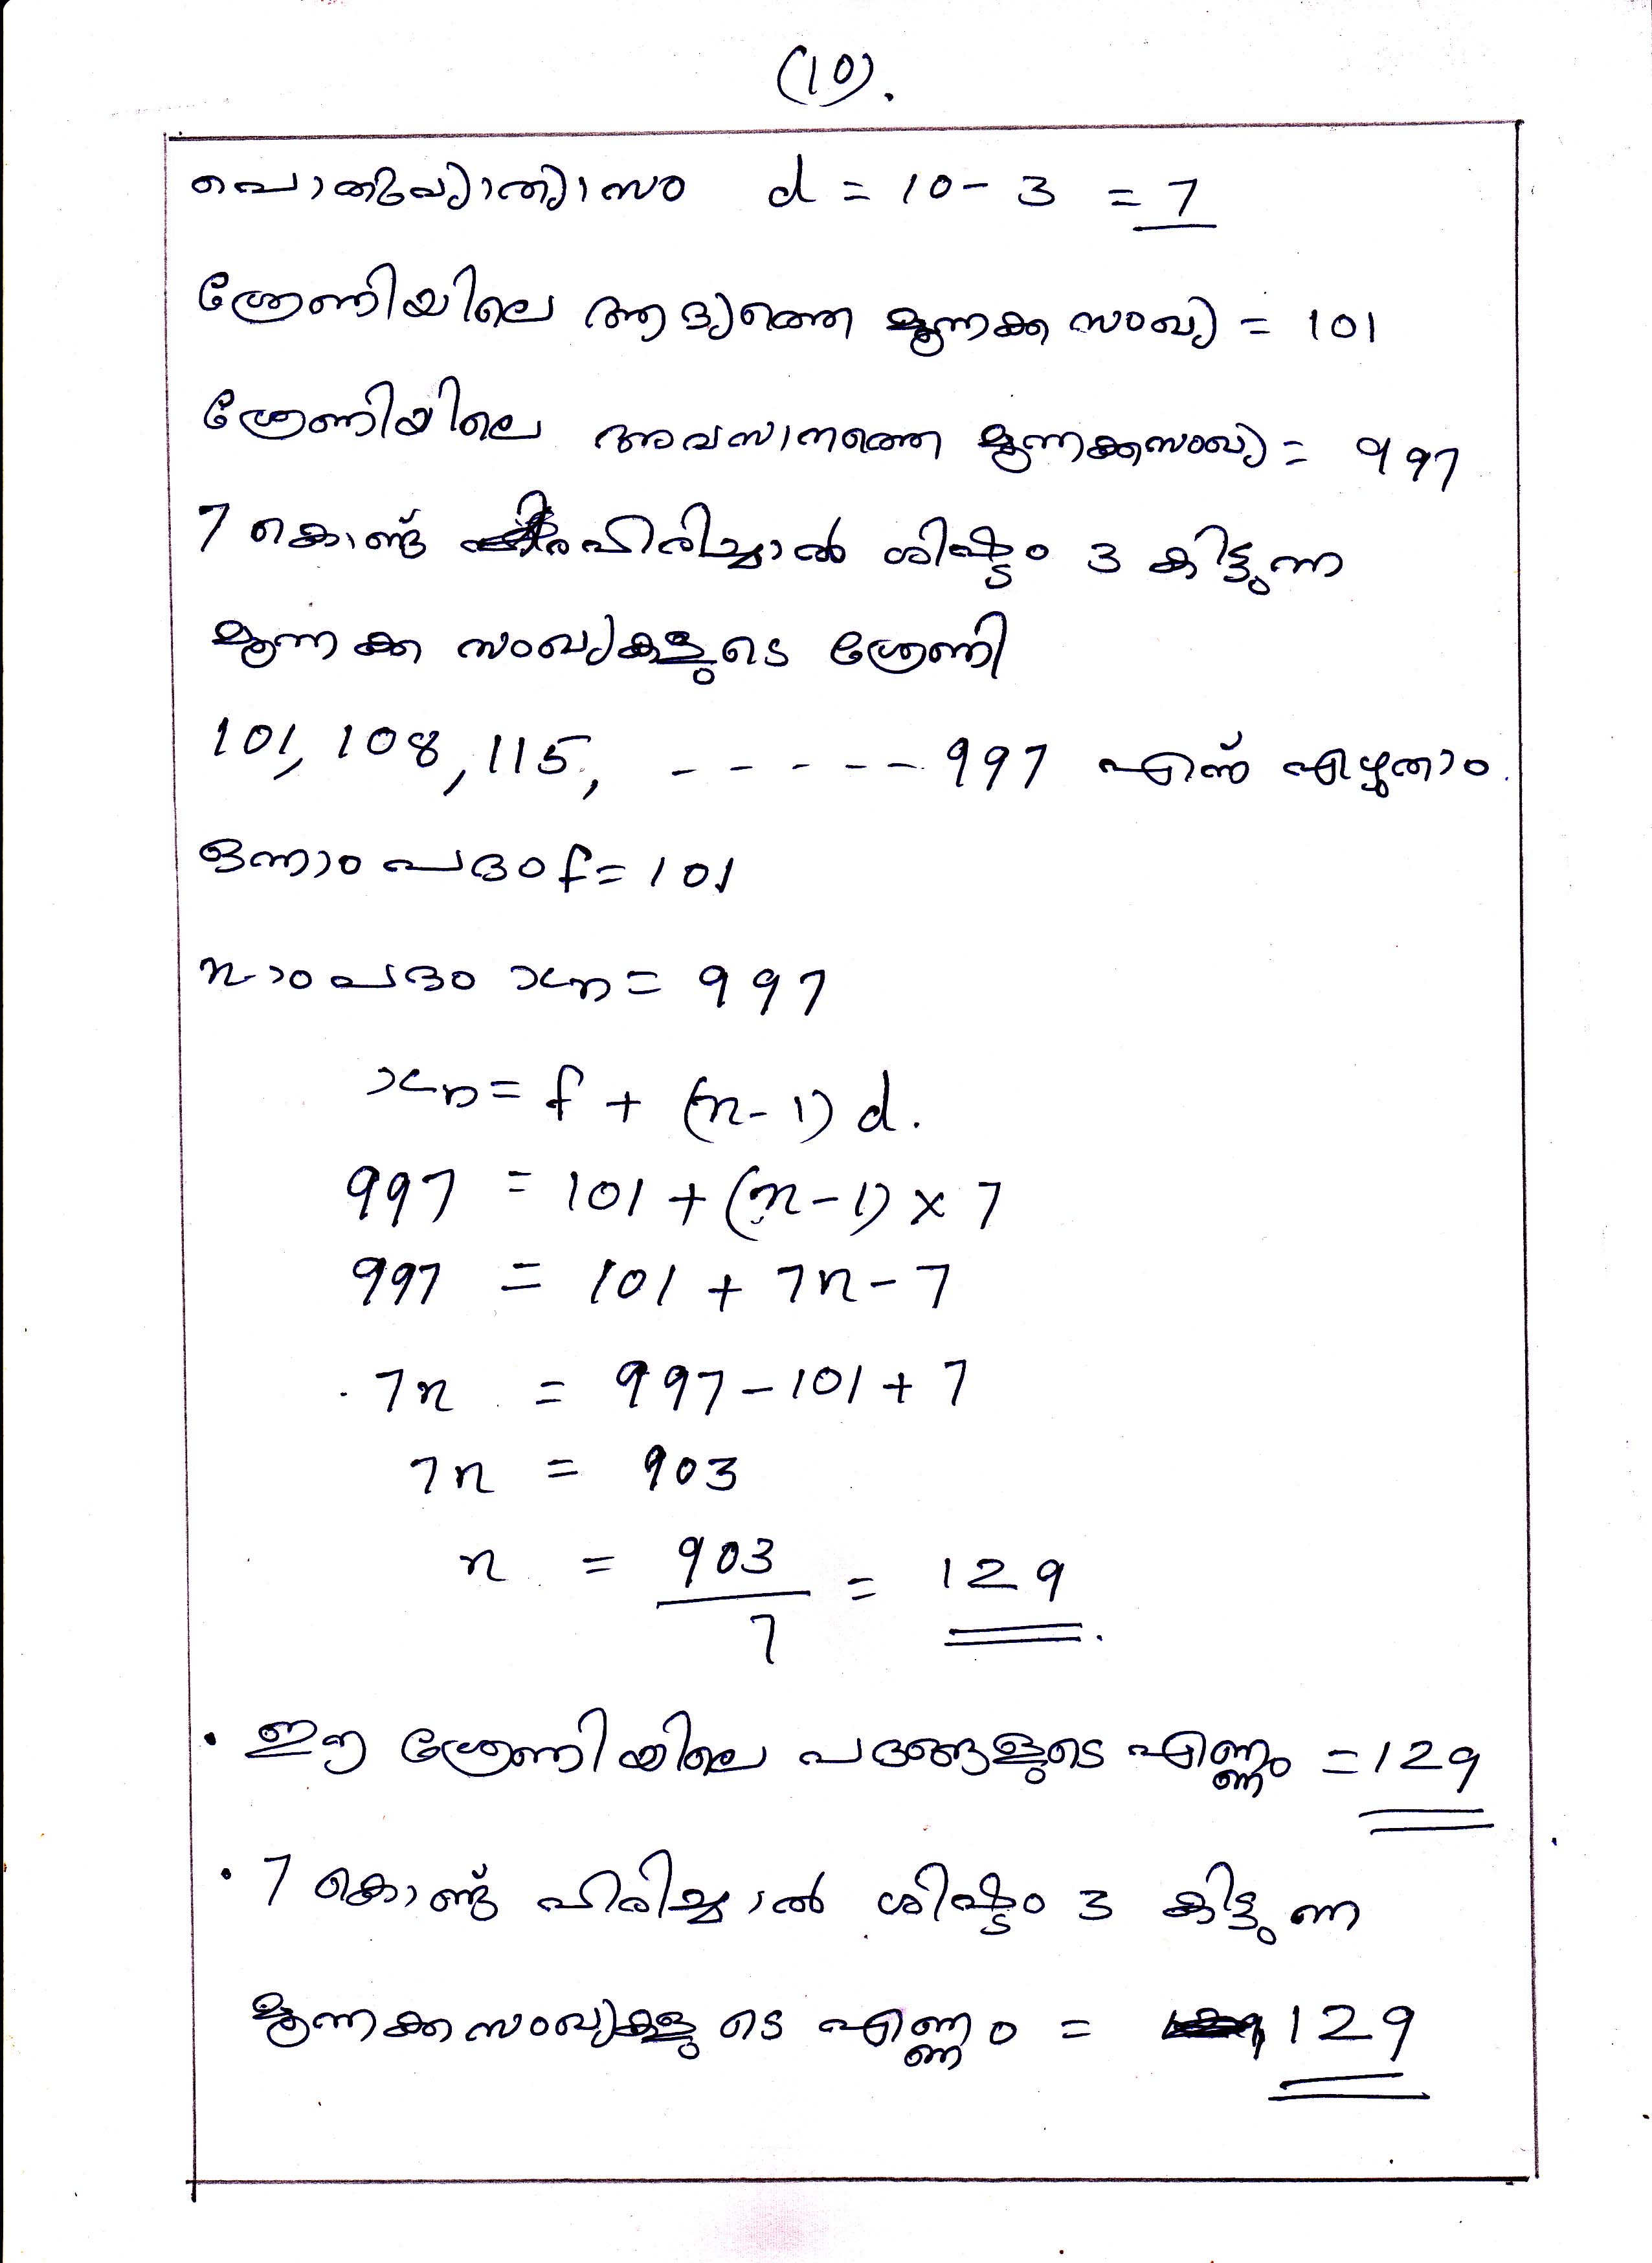 (10).
പൊതുവ്യത്യാസം d = 10 - 3 = 7
ശ്രേണിയിലെ ആദ്യത്തെ മൂന്നക്ക സംഖ്യ = 101
ശ്രേണിയിലെ അവസാനത്തെ മൂന്നക്കസംഖ്യ = 997
7 കൊണ്ട് ഹരിച്ചാൽ ശിഷ്ടം 3 കിട്ടുന്ന
മൂന്നക്ക സംഖ്യകളുടെ ശ്രേണി
101, 108, 115, - - - - - 997 എന്ന് എഴുതാം.
ഒന്നാം പദം f = 101
n-ാം പദം xn = 997
xn = f + (n - 1) d.
997 = 101 + (n - 1) × 7
997 = 101 + 7n - 7
7n = 997 - 101 + 7
7n = 903
n = 903/7 = 129.
• ഈ ശ്രേണിയിലെ പദങ്ങളുടെ എണ്ണം = 129
• 7 കൊണ്ട് ഹരിച്ചാൽ ശിഷ്ടം 3 കിട്ടുന്ന
മൂന്നക്കസംഖ്യകളുടെ എണ്ണം = 129